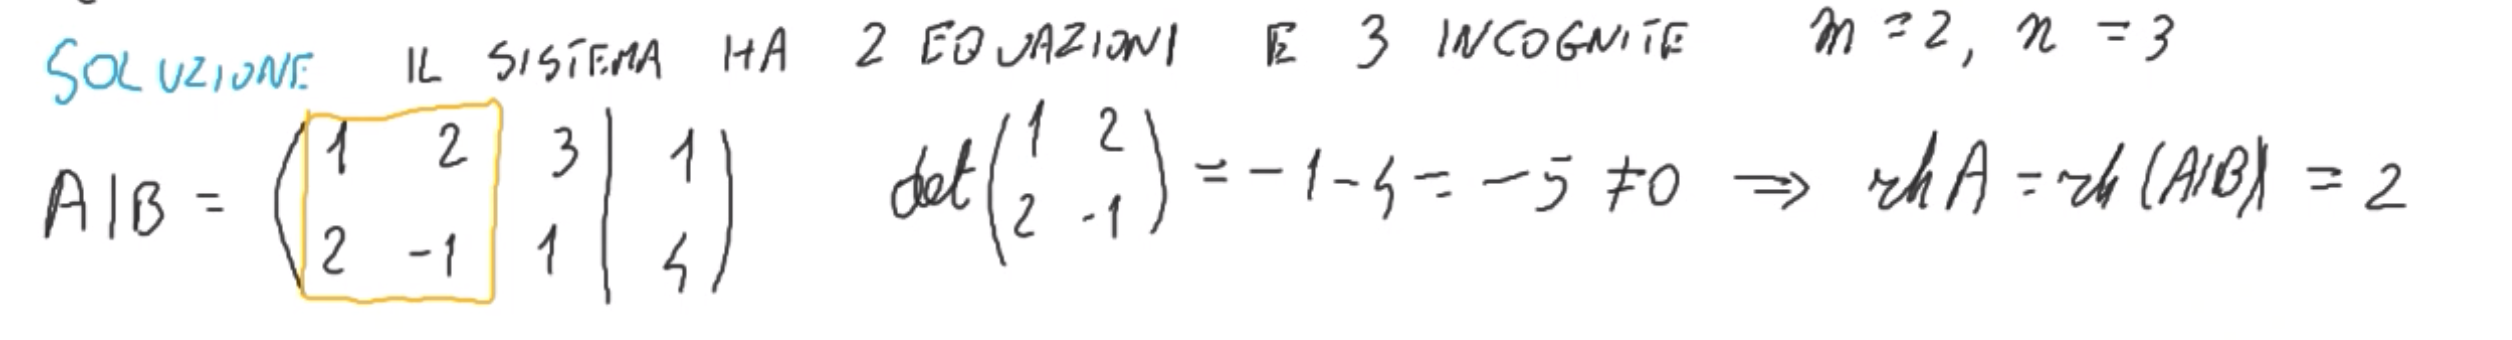 SOLUZIONE IL SISTEMA HA 2 EQUAZIONI E 3 INCOGNITE m = 2, n = 3
A|B = ( 1 2 3 | 1 ) det ( 1 2 ) = -1-4 = -5 ≠0 ⟹ rk A = rk (A|B) = 2
( 2 -1 1 | 4 ) ( 2 -1 )